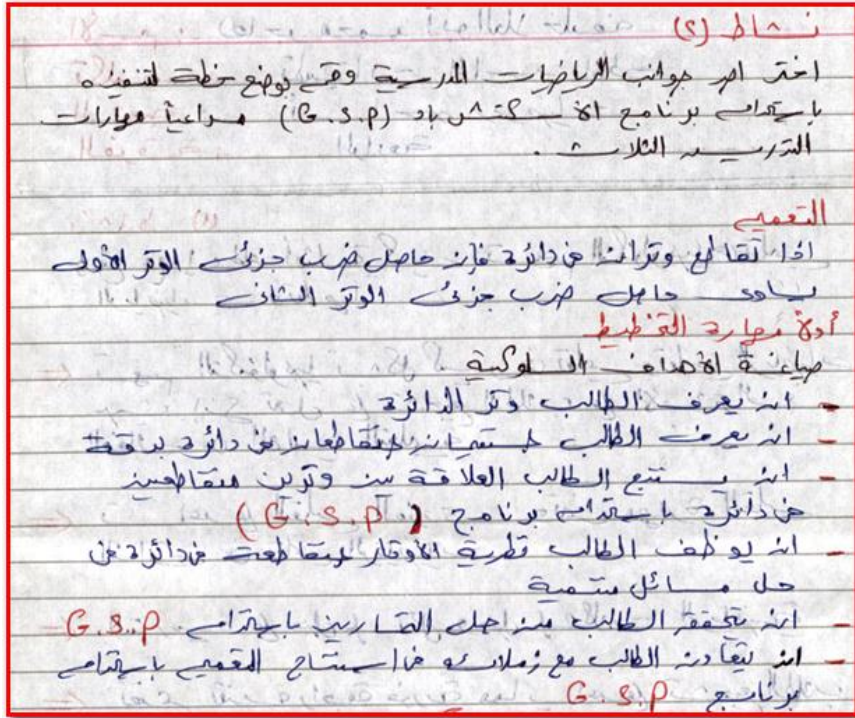 نشاط (٢)
اختر احد جوانب الرياضيات المدرسية وقم بوضع خطة لتنفيذه
باستخدام برنامج الاسكتش باد (G.S.P) مراعياً مهارات
التدريس الثلاث .
التعميم
اذا تقاطع وتران في دائرة فإن حاصل ضرب جزئى الوتر الأول
يساوى حاصل ضرب جزئى الوتر الثانى
أولاً مهارة التخطيط
صياغة الأهداف السلوكية
- ان يعرف الطالب وتر الدائرة
- ان يعرف الطالب متقاطعان في دائرة بدقة
- ان يستنتج الطالب العلاقة بين وترين متقاطعين
في دائرة باستخدام برنامج (G.S.P)
- ان يوظف الطالب نظرية الأوتار المتقاطعة في دائرة في
حل مسائل منتمية
- ان يتحقق الطالب من حل التمارين باستخدام G.S.P
- ان يتعاون الطالب مع زملائه في استنتاج التعميم باستخدام
برنامج G.S.P